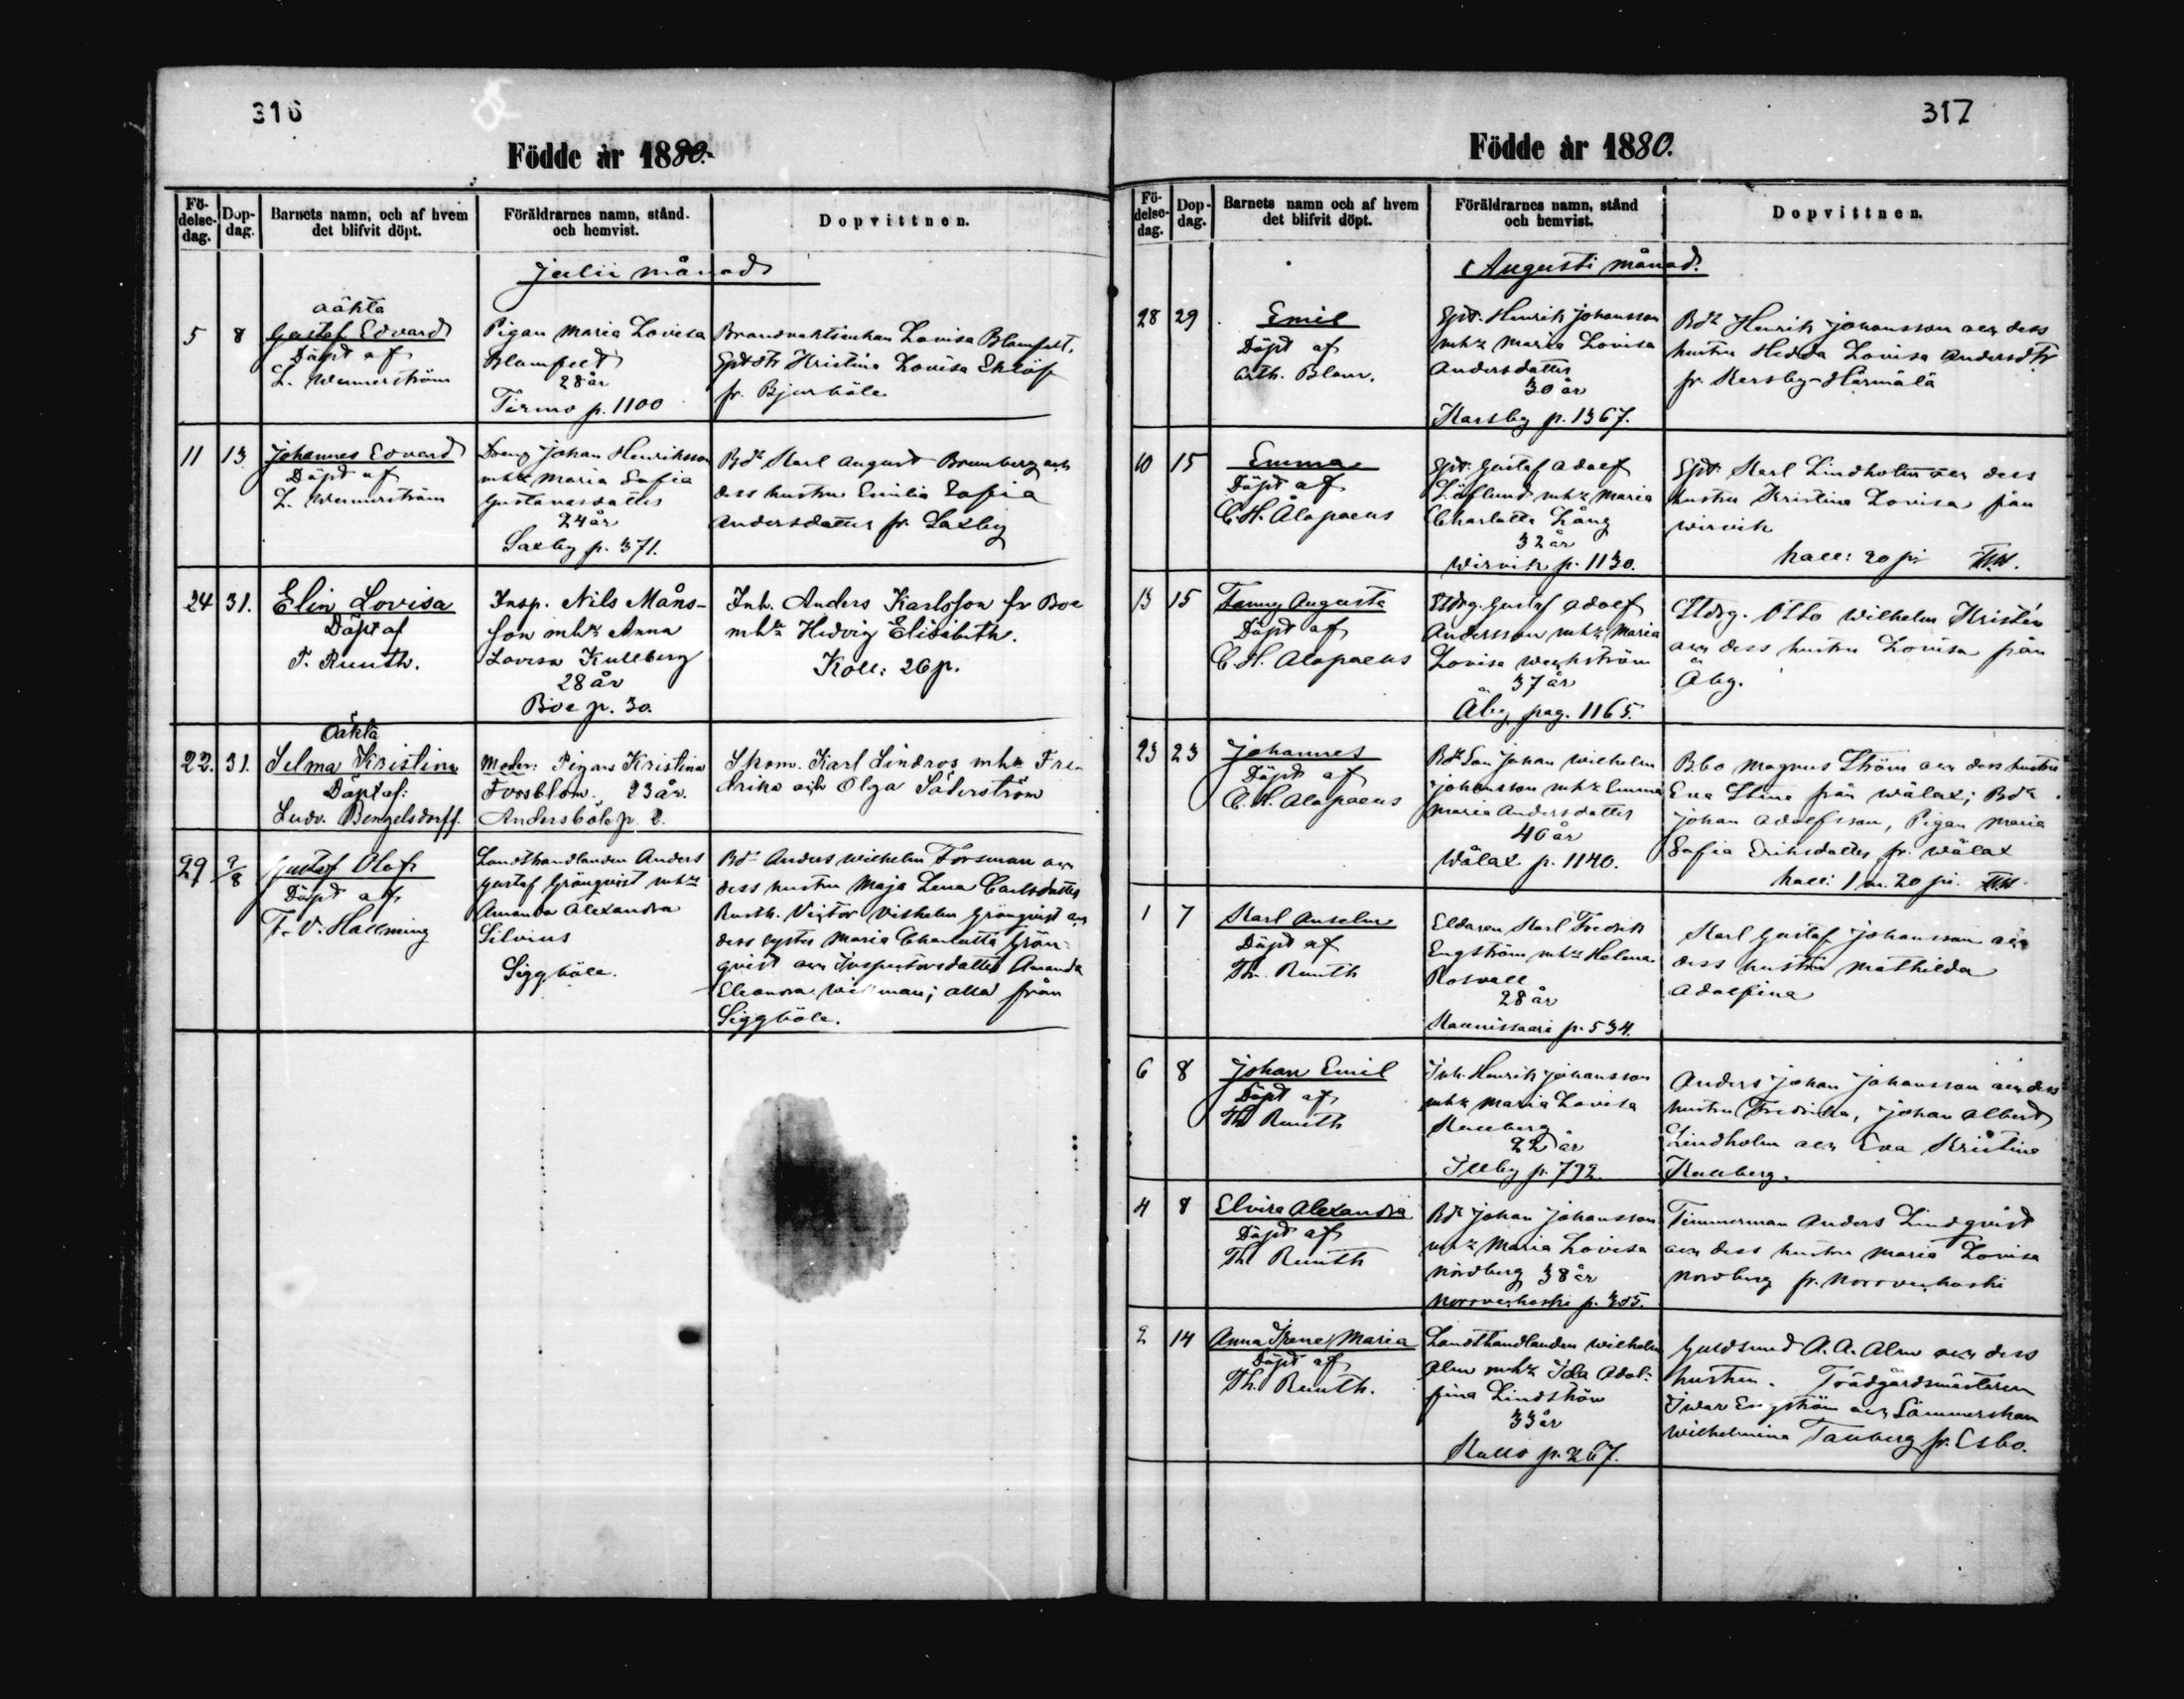 316
Födde år 1880.
Fö-
delse-
dag.
Dop-
dag.
Barnets namn, och af hvem
det blifvit döpt.
Föräldrarnes namn, stånd.
och hemvist.
Dopvittnen.
Julii månad
5 8
oäkta
Gustaf Edvard
Döpt af
L. Wennerström
Pigan Maria Lovisa
Blomfelt
28 år
Tirmo p. 1100
Brandvaktsenkan Lovisa Blomfelt,
Gptdtr Kristina Lovisa Eklöf
fr. Bjurböle
11 13
Johannes Edvard
Döpt af
L. Wennerström
Dreng Johan Henriksson
mhu Maria Sofia
Gustavasdatter
24 år
Saxby p. 371.
Bdn Karl August Brunberg och
dess hustru Emilia Sofia
Andersdatter fr. Saxby
24 31.
Elin Lovisa
Döpt af
T. Ruuth.
Insp. Nils Måns-
son mhu Anna
Lovisa Kullberg
28 år
Boe p. 30.
Inh. Anders Karlsson fr Boe
mhu Hedvig Elisabeth.
Koll: 26 p.
22. 31.
Oäkta
Selma Kristina
Döpt af:
Ludv. Bengelsdorff.
Moder: Pigan Kristina
Forsblom. 23 år.
Andersböle p. 2.
Skom. Karl Lindros mhu Fre-
drika och Olga Söderström
29 9/8
Gustaf Olof
Döpt af
F. V. Hallming
Landthandlanden Anders
Gustaf Grönqvist mhu
Amanda Alexandra
Silvius
Siggböle.
Bdn Anders Wilhelm Forsman och
dess hustru Maja Lena Carlsdatter
Rusth. Victor Vilhelm Grönqvist och
dess syster Maria Charlotta Grön-
qvist och Inspectorsdatter Amanda
Eleonora; alla från
Siggböle.
317
Födde år 1880.
Fö-
delse-
dag.
Dop-
dag.
Barnets namn och af hvem
det blifvit döpt.
Föräldrarnes namn, stånd
och hemvist.
Dopvittnen.
Augusti månad.
28 29
Emil
Döpt af
Arth. Blom.
Gpt. Henrik Johansson
mhu Maria Lovisa
Andersdatter
30 år
Karsby p. 1367.
Bdn Henrik Johansson och dess
hustru Hedda Lovisa Andersdtr
fr. Kersby-Härmälä
10 15
Emma
Döpt af
C. H. Alopaeus
Gpt: Gustaf Adolf
Löflund mhu Maria
Charlotta Lång
32 år
Wirvik p. 1130.
Gpt. Karl Lindholm och dess
hustru Kristina Lovisa från
Wirvik
koll: 20 pi
13 15
Fanny Augusta
Döpt af
C. H. Alopaeus
Stdrg. Gustaf Adolf
Andersson mhu Maria
Lovisa Weckström
37 år
Åby pag. 1165.
Stdrg. Otto Wilhelm Kristén
och dess hustru Lovisa från
Åby.
23 23
Johannes
Döpt af
C. H. Alopaeus
Bdeson Johan Wilhelm
Johansson mhu Emma
Maria Andersdatter
40 år
Wålax p. 1140.
B.bo Magnus Ström och dess hustru
Eva Stina från Wålax; Bdn
Johan Adolfsson, Pigan Maria
Sofia Eriksdatter fr. Wålax
koll: 1 m. 20 pi.
1 7
Karl Anselm
Döpt af
Th. Ruuth
Eldaren Karl Fredrik
Engström mhu Helena
Rosvall
28 år
Kaunissaari p. 534.
Karl Gustaf Johansson och
dess hustru Mathilda
Adolfina
6 8
Johan Emil
Döpt af
Th Ruuth
Inh. Henrik Johansson
mhu Maria Lovisa
Kullberg
22 år
Illby p. 792.
Anders Johan Johansson och dess
hustru Fredrika, Johan Albert
Lindholm och Eva Kristina
Kullberg.
4 8
Elvira Alexandra
Döpt af
Th Ruuth
Bdn Johan Johansson
mhu Maria Lovisa
Nordberg 38 år
Norrveckoski p.
Timmerman Anders Lindqvist
och dess hustru Maria Lovisa
Nordberg fr. Norrveckoski
2 14
Anna Irene Maria
Döpt af
Th. Ruuth.
Landthandlanden Wilhelm
Alm mhu Ida Adol-
fina Lindström
33 år
Kullo p. 267.
Guldsmed A. A. Alm och dess
hustru. Trädgårdsmästaren
Ivar Engström och Sömmerskan
Wilhelmina Tauberg fr. Esbo.